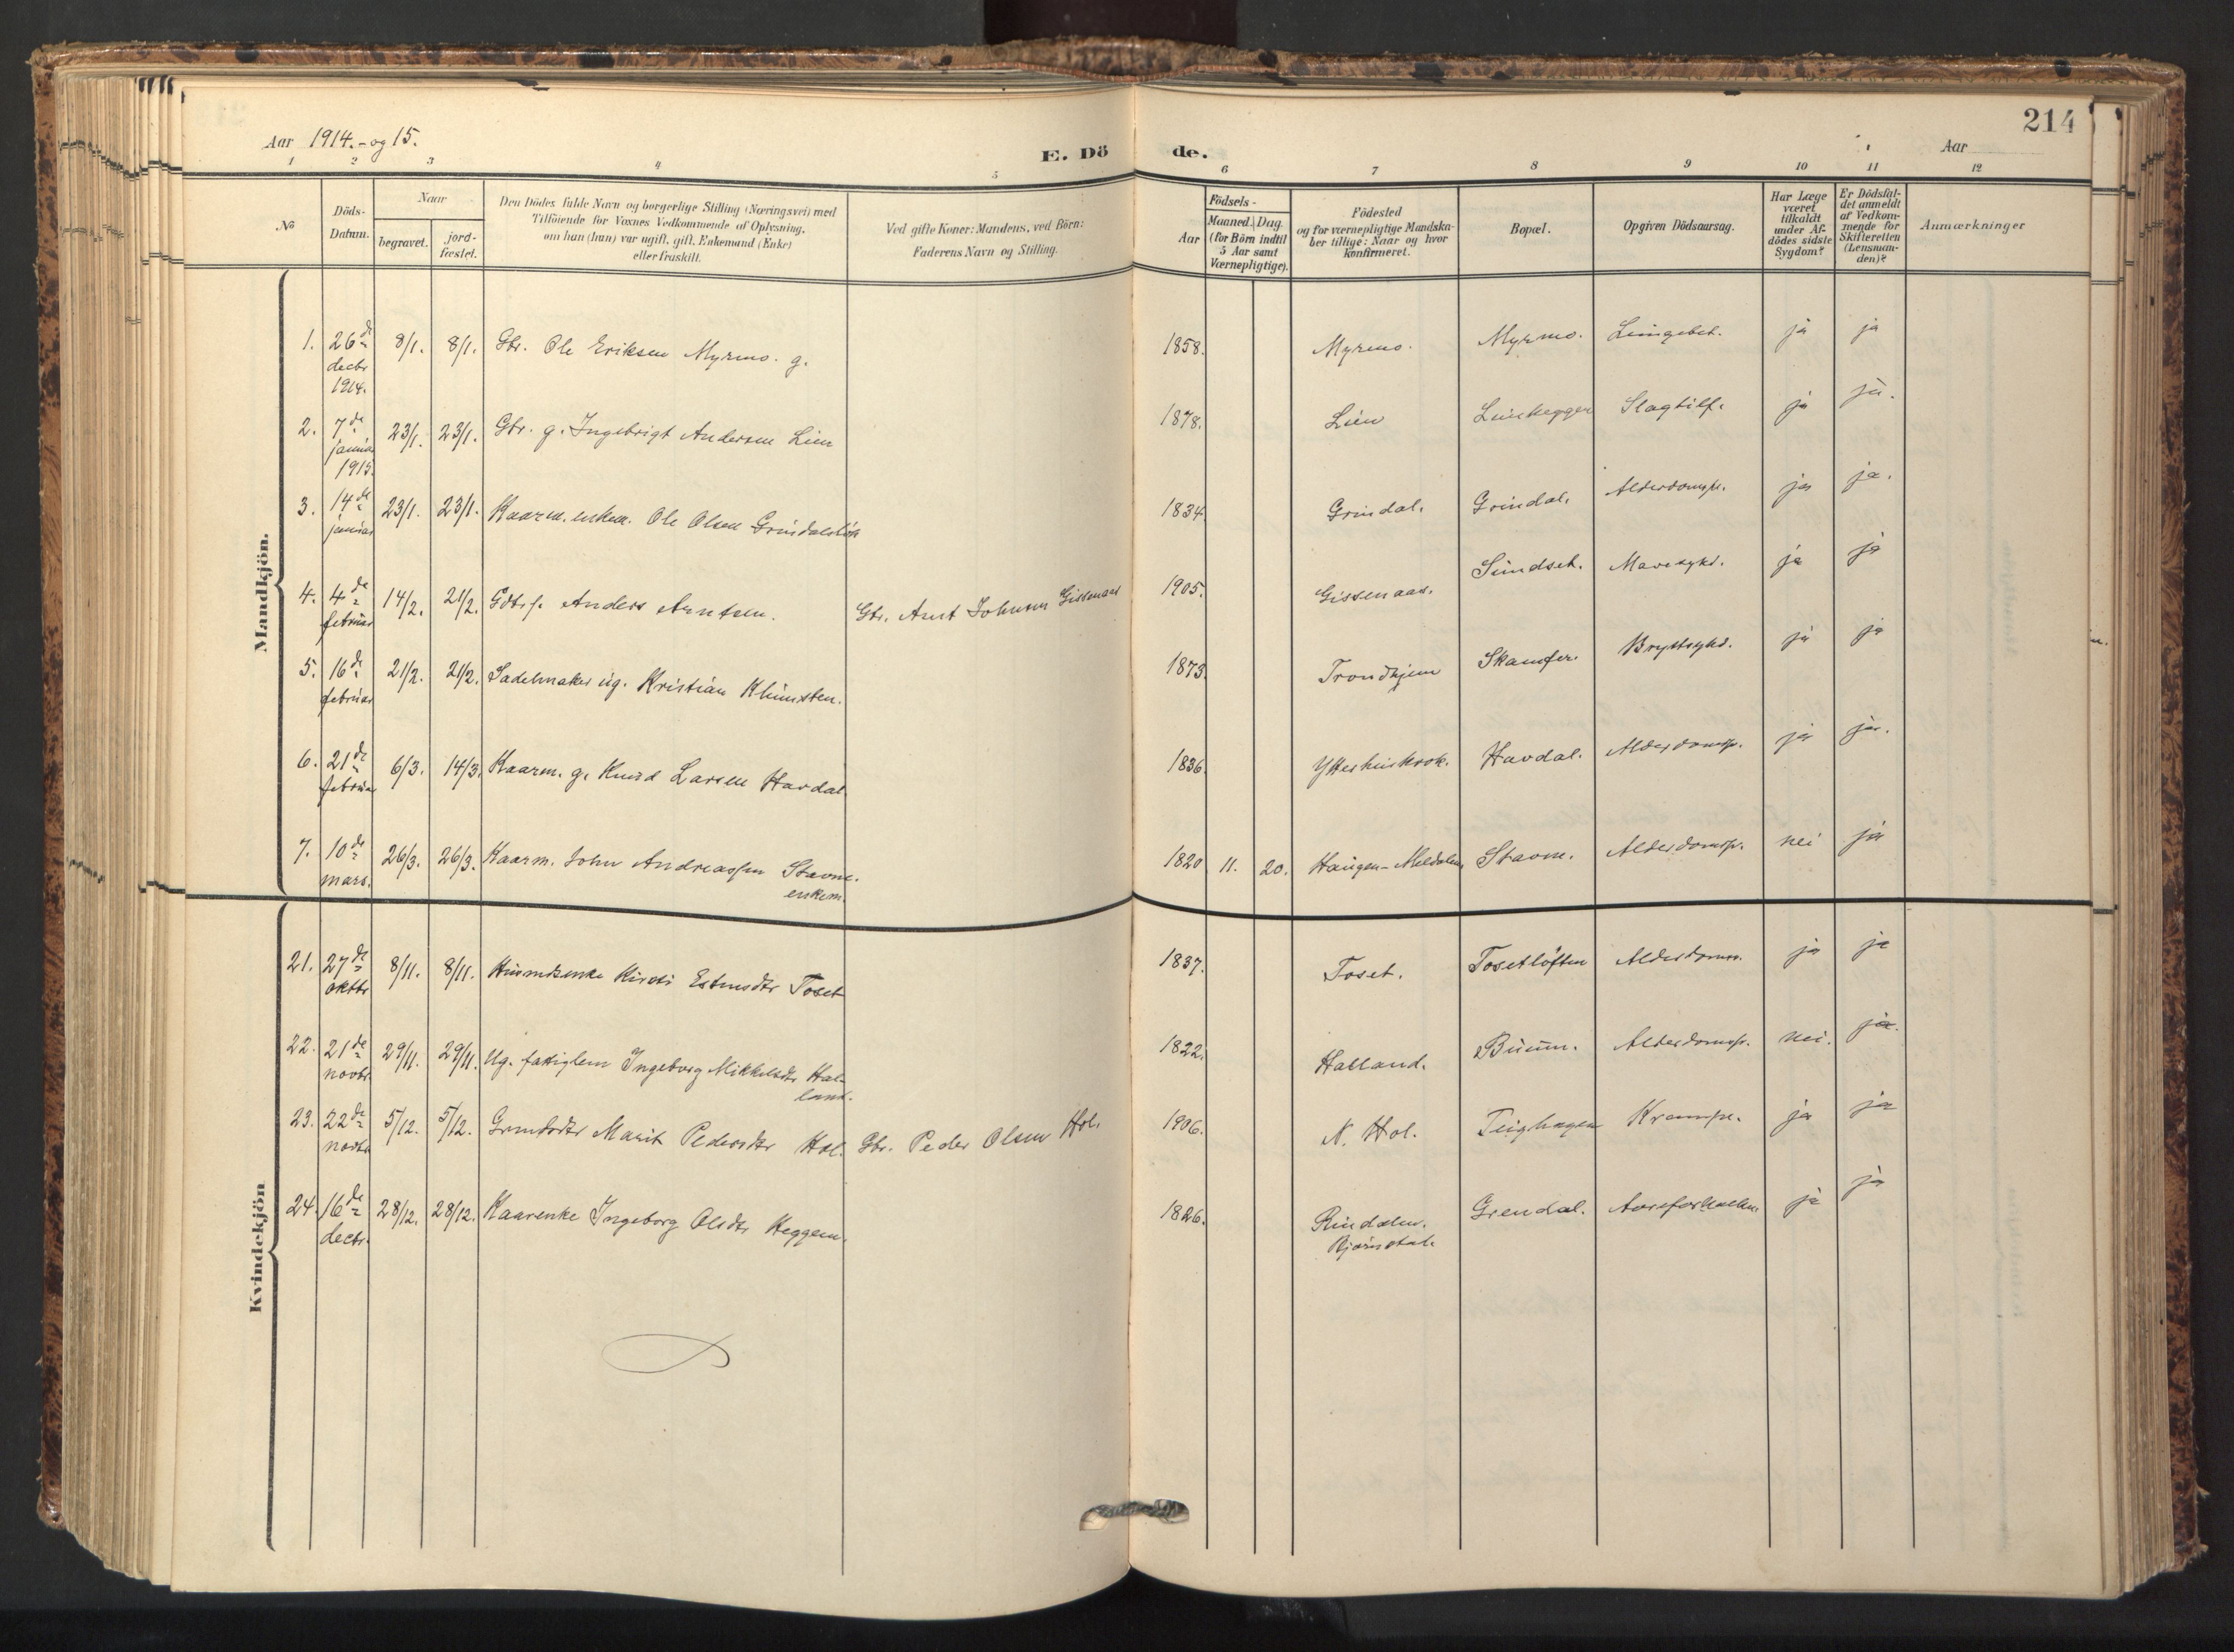 214
Aar 1914.- og 15.
E. Dö de.
Aar
1 2 3 4 5 6 7 8 9 10 11 12
No
Döds-Datum.
Naar
begravet.
jord-fæstet.
Den Dödes fulde Navn og borgerlige Stilling (Næringsvei) med
Tilföiende for Voxnes Vedkommende af Oplysning,
om han (hun) var ugift, gift, Enkemand (Enke)
eller fraskilt.
Ved gifte Koner: Mandens, ved Börn:
Faderens Navn og Stilling.
Födsels-
Aar
Maaned. Dag.
(for Börn indtil
5 Aar samt
Værnepligtige).
Födested
og for værnepligtige Mandska-
ber tillige: Naar og hvor
konfirmeret.
Bopæl.
Opgiven Dödsaarsag.
Har Læge
været
tilkaldt
under Af-
dödes sidste
Sygdom?
Er Dödsfal-
det anmeldt
af Vedkom-
mende for
Skifteretten
(Lensman-
den)?
Anmærkninger
Mandkjön.
1. 26de decbr 1914. 8/1. 8/1. Gbr. Ole Eriksen Myrmo. g. 1858. Myrmo. Myrmo. Lungebet. ja ja
2. 7de januar 1915. 23/1. 23/1. Gbr. g. Ingebrigt Andersen Lien 1878. Lien Slagtilf. ja ja.
3. 14de januar 23/1. 23/1. Kaarm. enkem. Ole Olsen 1834. Grindal. Grindal. Alderdomssv. ja ja.
4. 4de februar 14/2. 21/2. Anders Arntsen. Gbr. Arnt Johnsen Gissenaas 1905. Gissenaas. Sundset. Mavesygd. ja ja
5. 16de februar 21/2. 21/2. Sadelmaker ug. Kristian 1873. Trondhjem Skamfer. Brystsygd. ja ja
6. 21de februar 6/3. 14/3. Kaarm. g. Knud Larsen Havdal. 1836. Havdal. Alderdomssv. ja ja.
7. 10de mars. 26/3. 26/3. Kaarm. John Andreassen Stavne. enkem. 1820 11. 20. Haugen-Meldalen Stavne. Alderdomssv. nei ja
Kvindekjön
21. 27de oktbr 8/11. 8/11. Husmdsenke Kirsti Estensdtr Toset 1837. Toset. Tosetløften Alderdomssv. ja ja
22. 21de novbr. 29/11. 29/11. Ug. fattiglem Ingeborg Mikkelsdtr Hal-
land. 1822. Halland. Alderdomssv. nei. ja.
23. 22de novbr 5/12. 5/12. Marit Pedersdtr Hol. Gbr. Peder Olsen Hol. 1906. N. Hol. Teighagen Krampe. ja ja
24. 16de decbr. 28/12. 28/12. Kaarenke Ingeborg Olsdtr Heggem. 1826. Rindalen. Grendal. ja ja